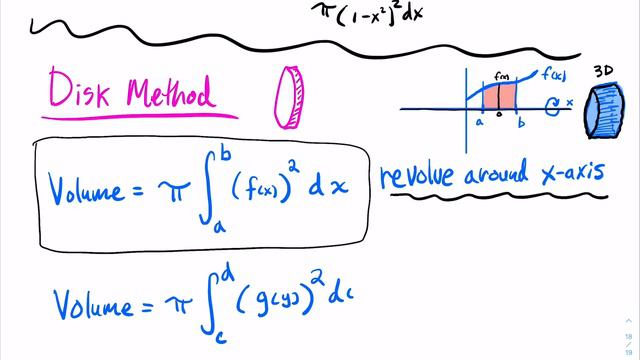 π(1-x²)²dx
Disk Method
f(x)
f(x)
3D
a
b
x
Volume = π ∫_a^b (f(x))² dx
revolve around x-axis
Volume = π ∫_c^d (g(y))² d
18
/
19